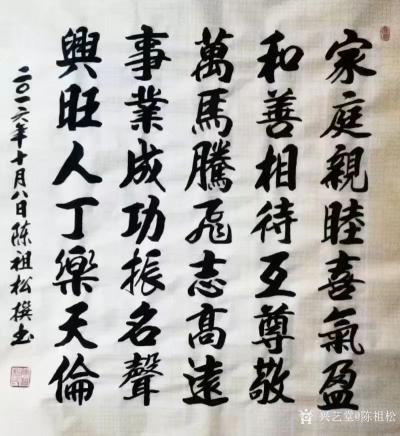 家庭親睦喜氣盈
和善相待互尊敬
萬馬騰飛志高遠
事業成功振名聲
興旺人丁樂天倫
二〇一六年十月八日陈祖松撰书
兴艺堂@陈祖松